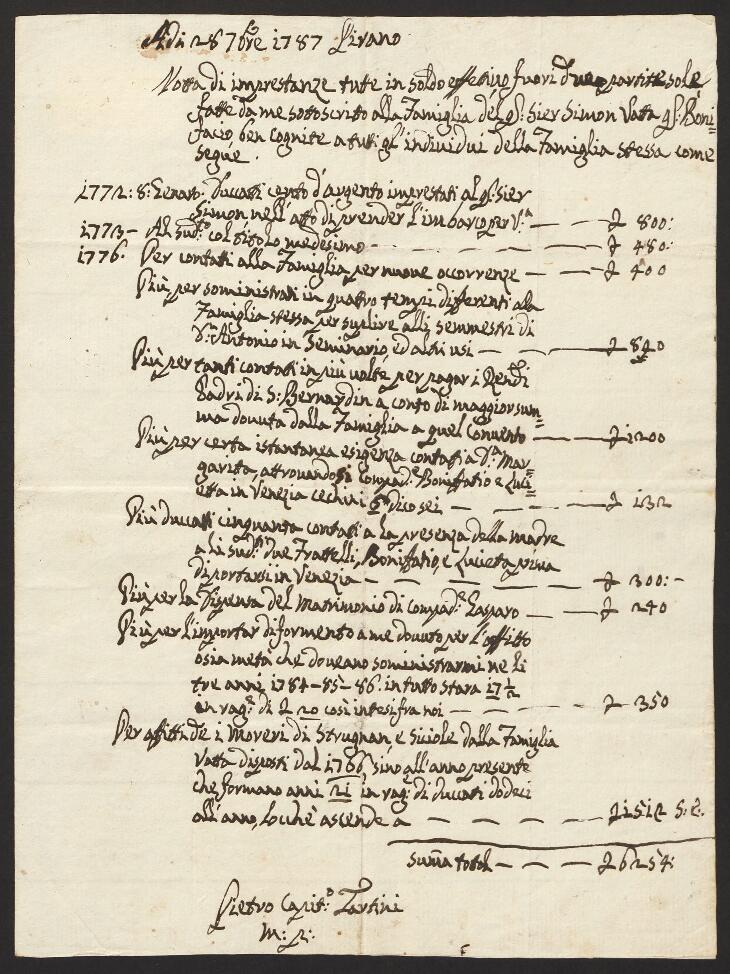 Adi 28 7bre 1787 Pirano
Notta di imprestanze tute in soldo effetivo fuori due partite sole
fatte da me sottoscrito alla Famiglia del qm: Sier Simon Vatta qm: Boni=
facio ben cognite a tuti gl'individui della Famiglia stessa come
segue.
1772: 8: Genaro. Ducatti cento d'argento imprestati al qm: sier
Simon nell'atto di prender l'imbarco per V.a — — £ 800:
1773 – Al sud.o col titolo medesimo — — — £ 480:
1776. Per contati alla Famiglia per nuove occorrenze — — £ 400
Più per soministrati in quattro tempi differenti ala
Famiglia stessa per suplire alli semmestri di
D.n Antonio in Seminario, ed altri usi — — — £ 840
Più per tanti contati in più volte per pagar i Rendi
Padri di S: Bernardin a conto di maggior sum=
ma dovuta dalla Famiglia a quel Convento — £ 1200
Più per certa istantanea esigenza contati a D.a Mar=
garita, attrovandosi Compad.e Boniffatio e Luci=
etta in Venezia cechini 6 dico sei — — — £ 132
Più ducati cinquanta contati a la presenza della madre
a li sud.ti due Frattelli, Bonifatio, e Lucieta prima
di portarsi in Venezia — — — — £ 300: –
Più per la Dispensa del Matrimonio di Compad.e Gasparo — £ 240
Più per l'importar di formento a me dovuto per l'affitto
osia metà che doveano soministrarmi ne li
tre anni 1784–85–86. in tutto stara 17 1/2
in rag.e di £ 20 così intesi fra noi — — — — £ 350
Per affitti de i Moreri di Strugnan, e Siciole dalla Famiglia
Vatta disposti dal 1766 sino all'anno presente
che formano anni 21 in rag: di ducati dodeci
all'anno, locchè ascende a — — — — £ 1512 S: E.
suma total — — — £ 6254:
Pietro Capit.o Tartini
m: p: